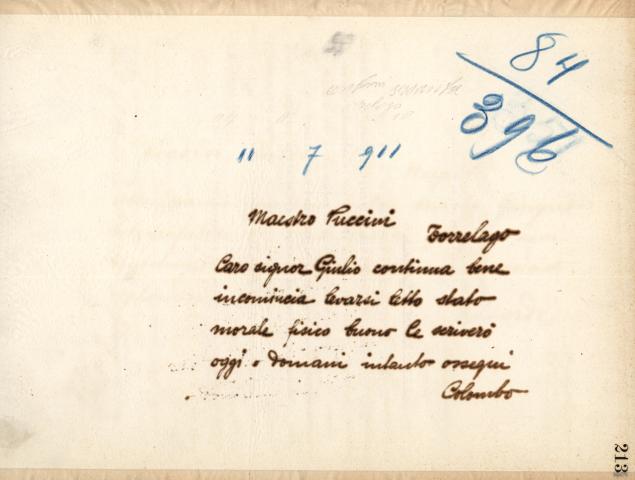 84
396
11 7 911
Maestro Puccini
Torrelago
Caro signor Giulio continua bene
incomincia levarsi letto stato
morale fisico buono Le scriverò
oggi o domani intanto ossequi
Colombo
213